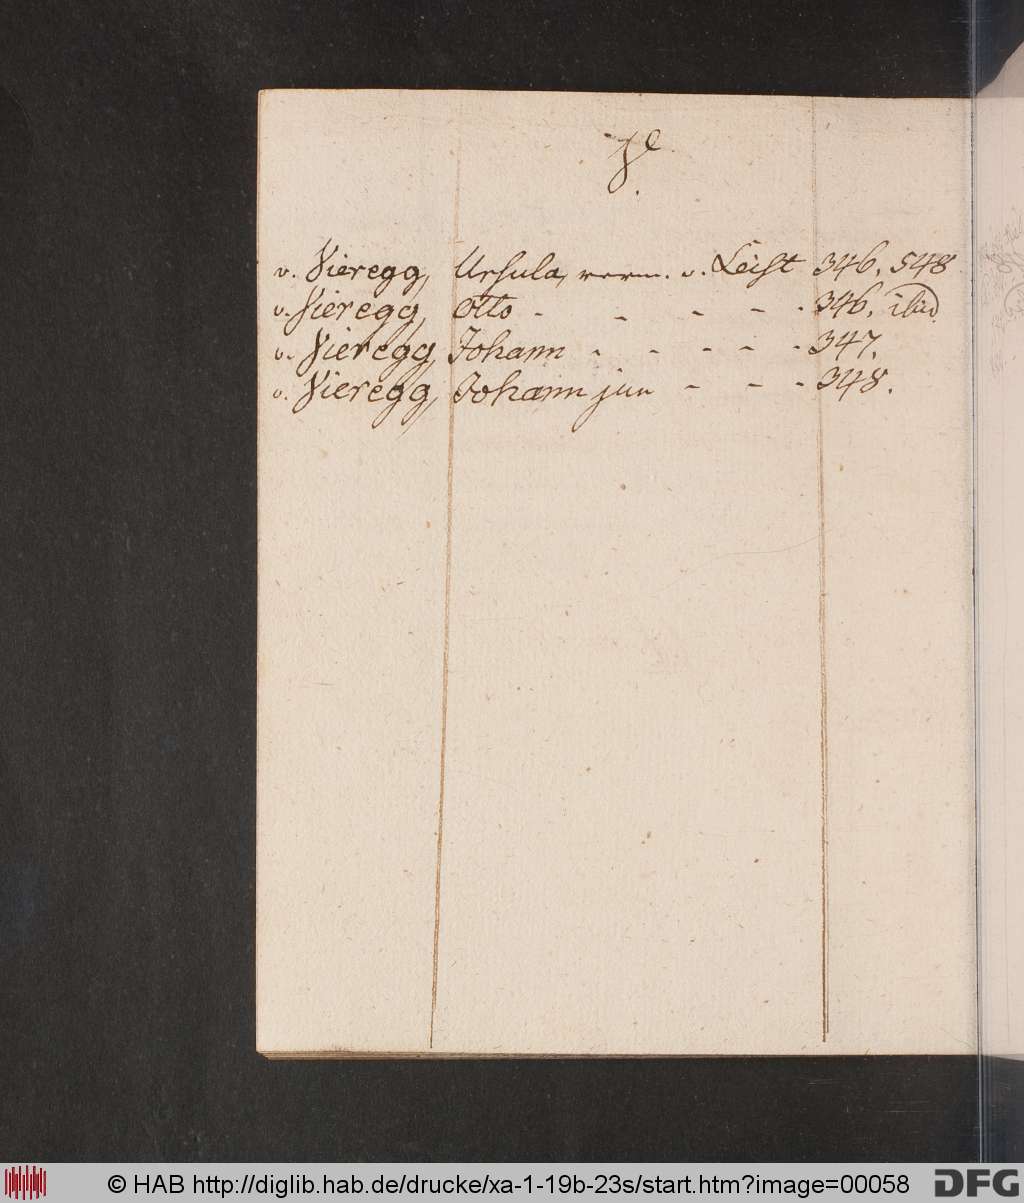 V.
v. Vieregg, Ursula, verm. v. Leist 346. 548
v. Vieregg, Otto - - - - - 346. ibid.
v. Vieregg, Johann - - - - - 347.
v. Vieregg, Johann jun - - - 348.
© HAB http://diglib.hab.de/drucke/xa-1-19b-23s/start.htm?image=00058 DFG